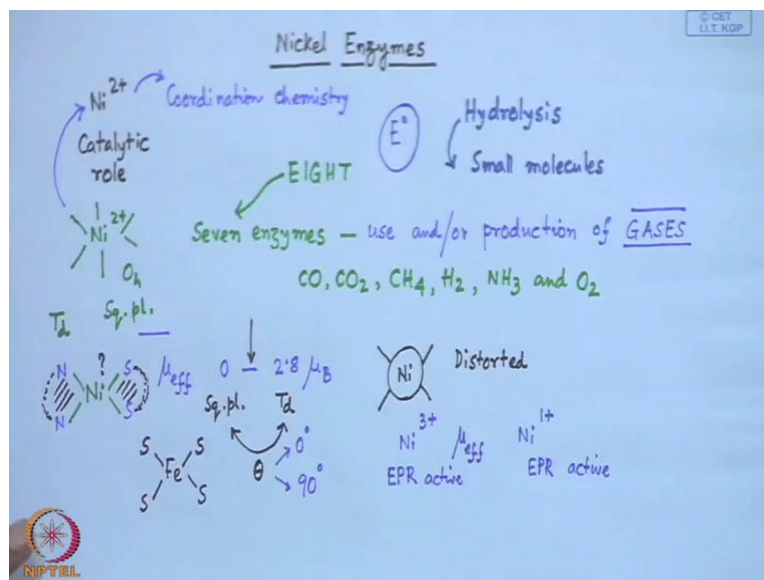 © CET
I.I.T. KGP
Nickel Enzymes
Ni2+
Coordination chemistry
Catalytic
role
E°
Hydrolysis
Small molecules
EIGHT
Ni2+
Oh
Seven enzymes – use and/or production of GASES
CO, CO2, CH4, H2, NH3 and O2
Td Sq. pl.
N Ni S
?
N S
μeff 0 – 2.8 μB
Sq. pl. Td
θ 0°
90°
S S
Fe
S S
Ni Distorted
Ni3+ μeff Ni1+
EPR active EPR active
NPTEL